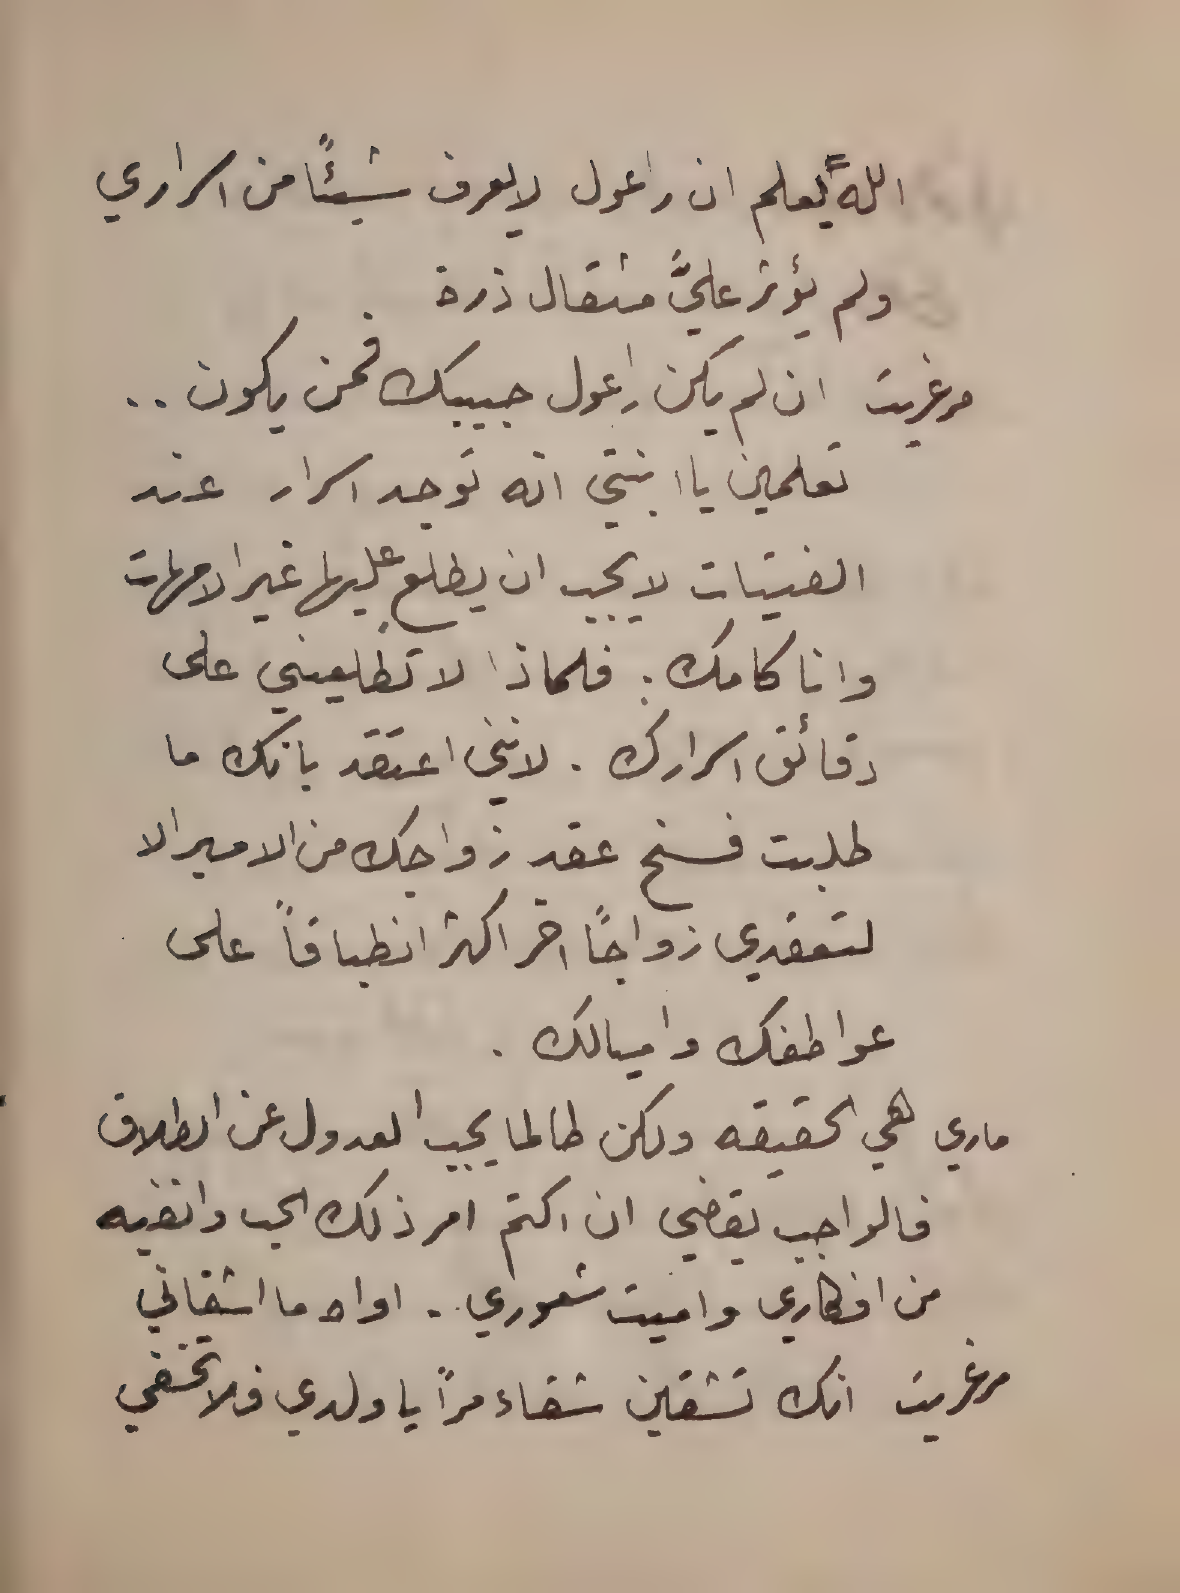 اللهً يعلم ان راعول لا يعرف شيئًا من اسراري
ولم يؤثر عليَّ مثقال ذرة
مرغريت ان لم يكن راعول حبيبك فمن يكون ..
تعلمين يا ابنتي انه توجد اسرار عند
الفتيات لا يجب ان يطلع عليها غير الامهات
وانا كامك . فلماذا لا تطلعيني على
دقائق اسرارك . لانني اعتقد بانك ما
طلبت فسخ عقد زواجك من الامير الا
لتعقدي زواجًا اخر اكثر انطباقاً على
عواطفك واميالك .
ماري هي الحقيقه ولكن طالما يجب العدول عن الطلاق
فالواجب يقضي ان اكتم امر ذلك الحب وانفيه
من افكاري واميت شعوري .. اواه ما اشقاني
مرغريت انك تشقين شقاء مراً يا ولدي فلا تخفي